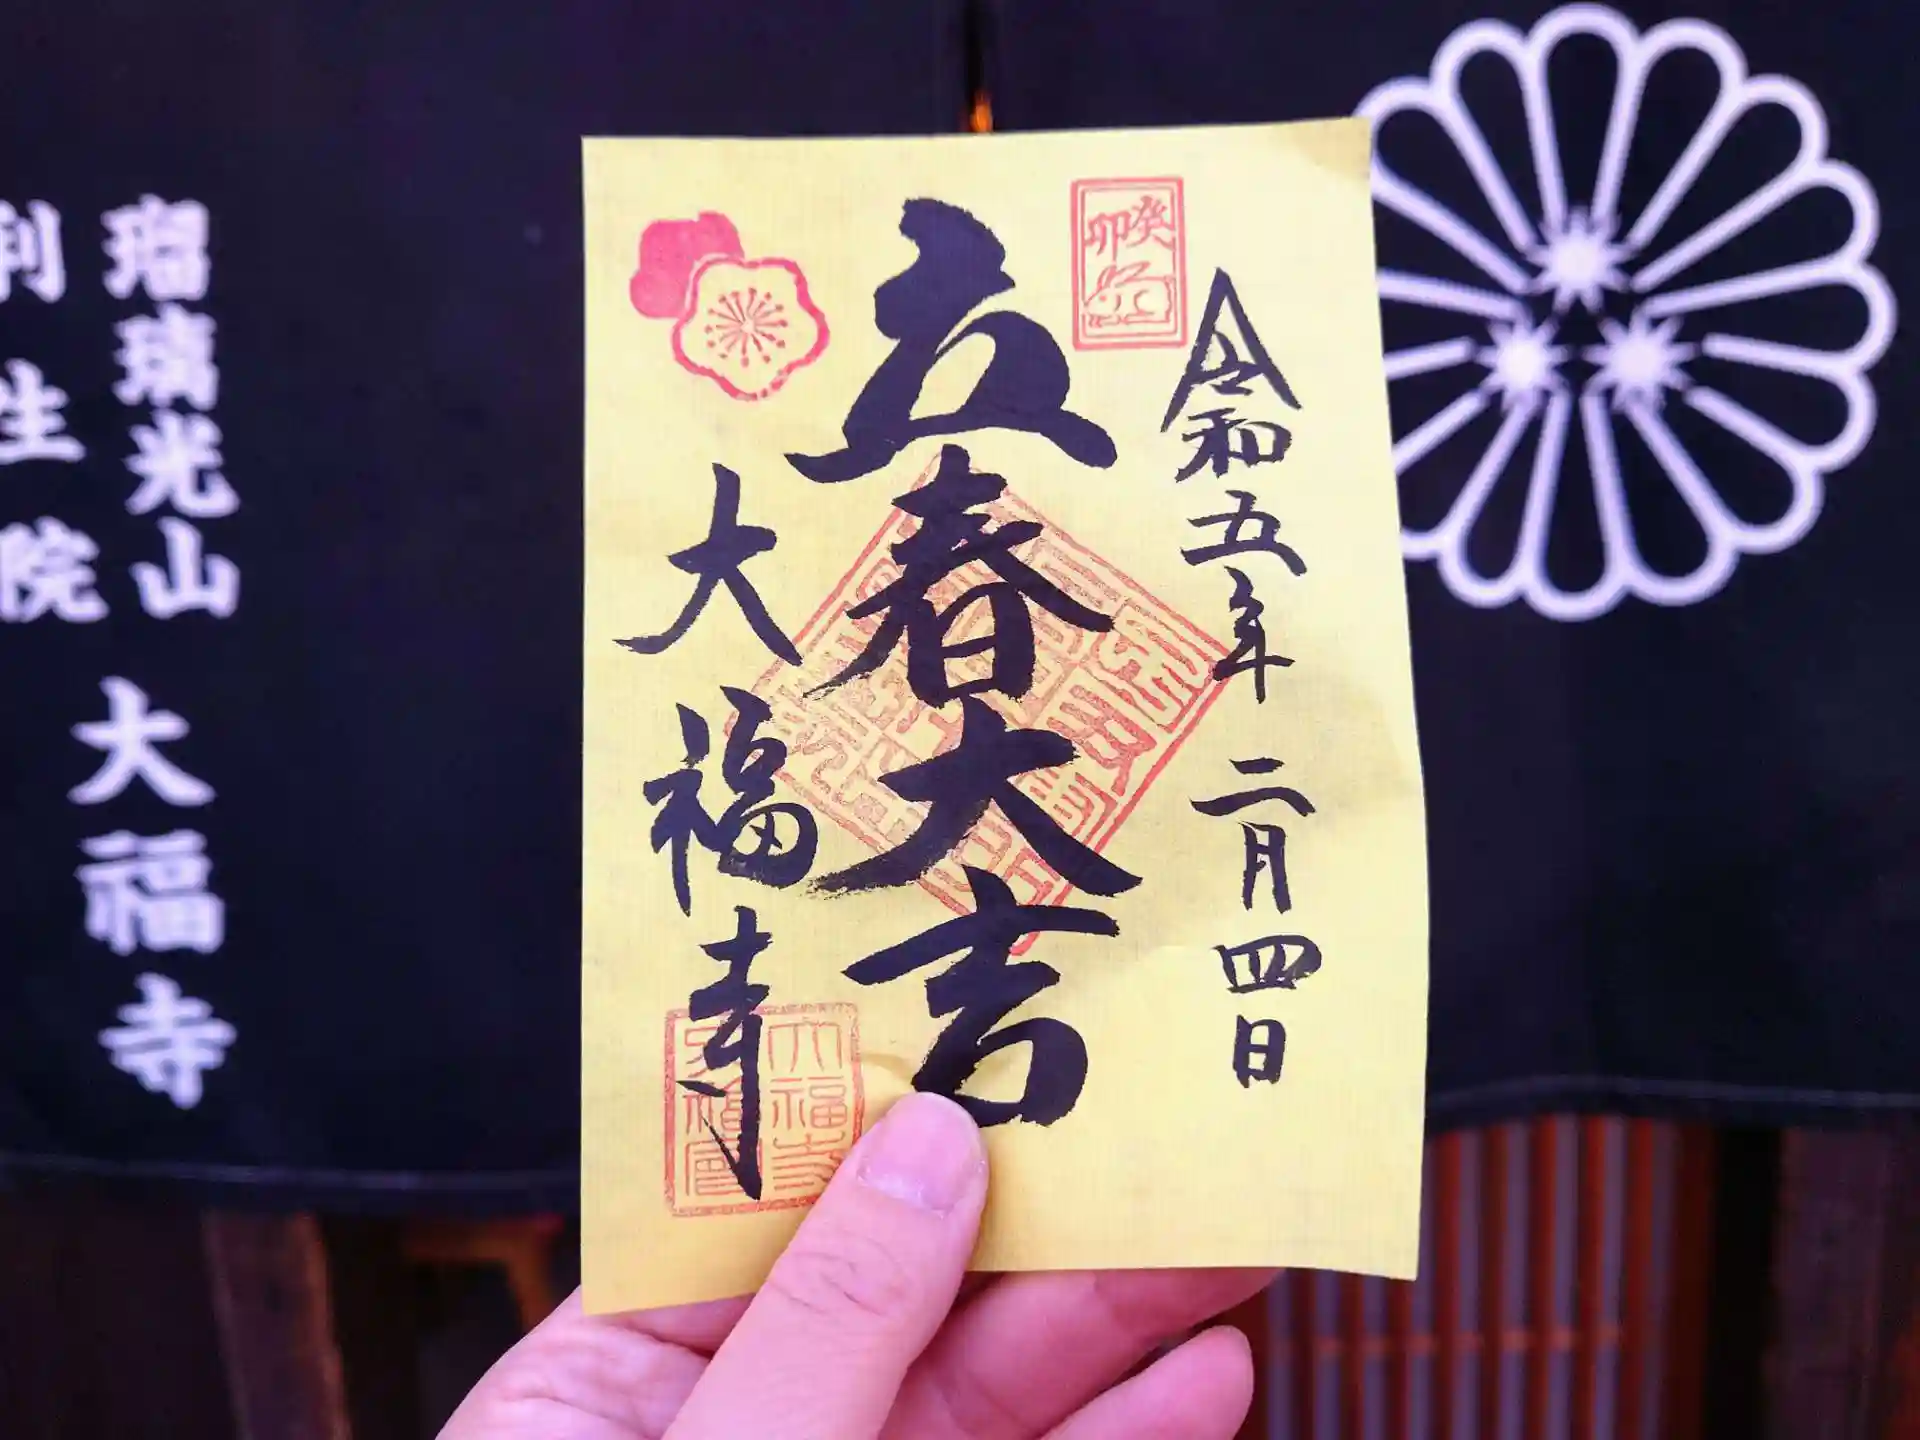 令和五年 二月四日
癸卯
立春大吉
大福寺
大福寺
瑠璃光山
利生院
大福寺